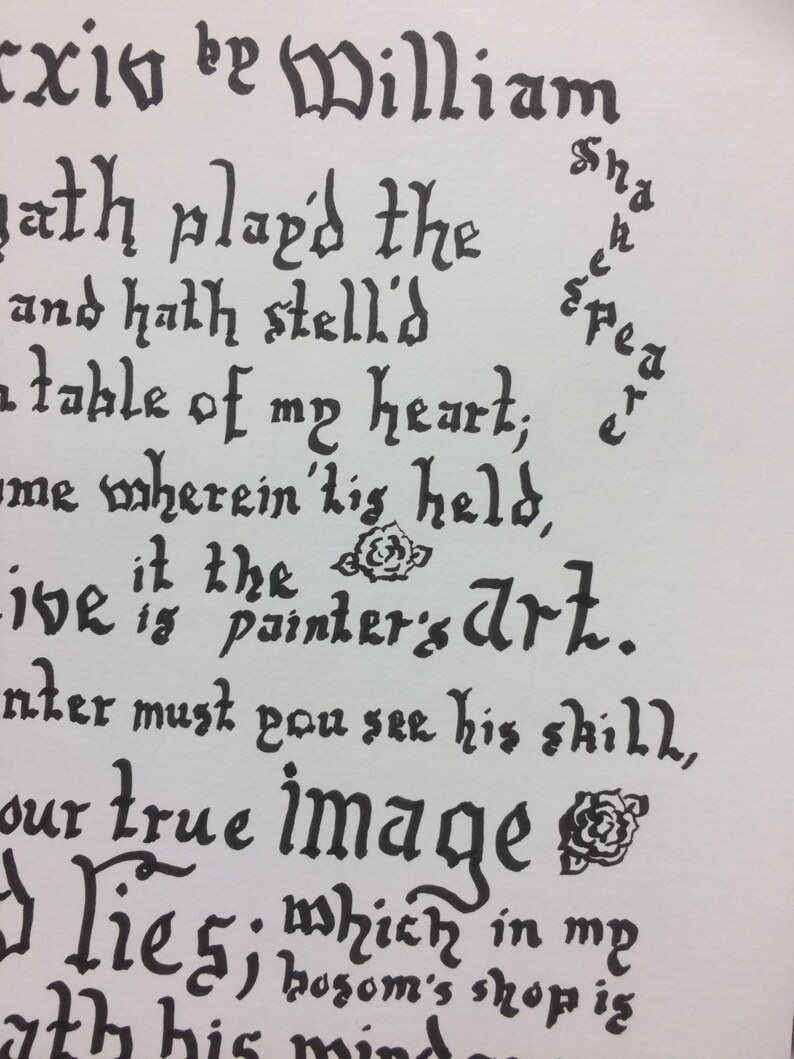 xxiv by William
Shakespeare
hath play'd the
and hath stell'd
n table of my heart;
ame wherein 'tis held,
ive it the
is painter's art.
nter must you see his skill,
our true image
d lies; which in my
bosom's shop is
ath his